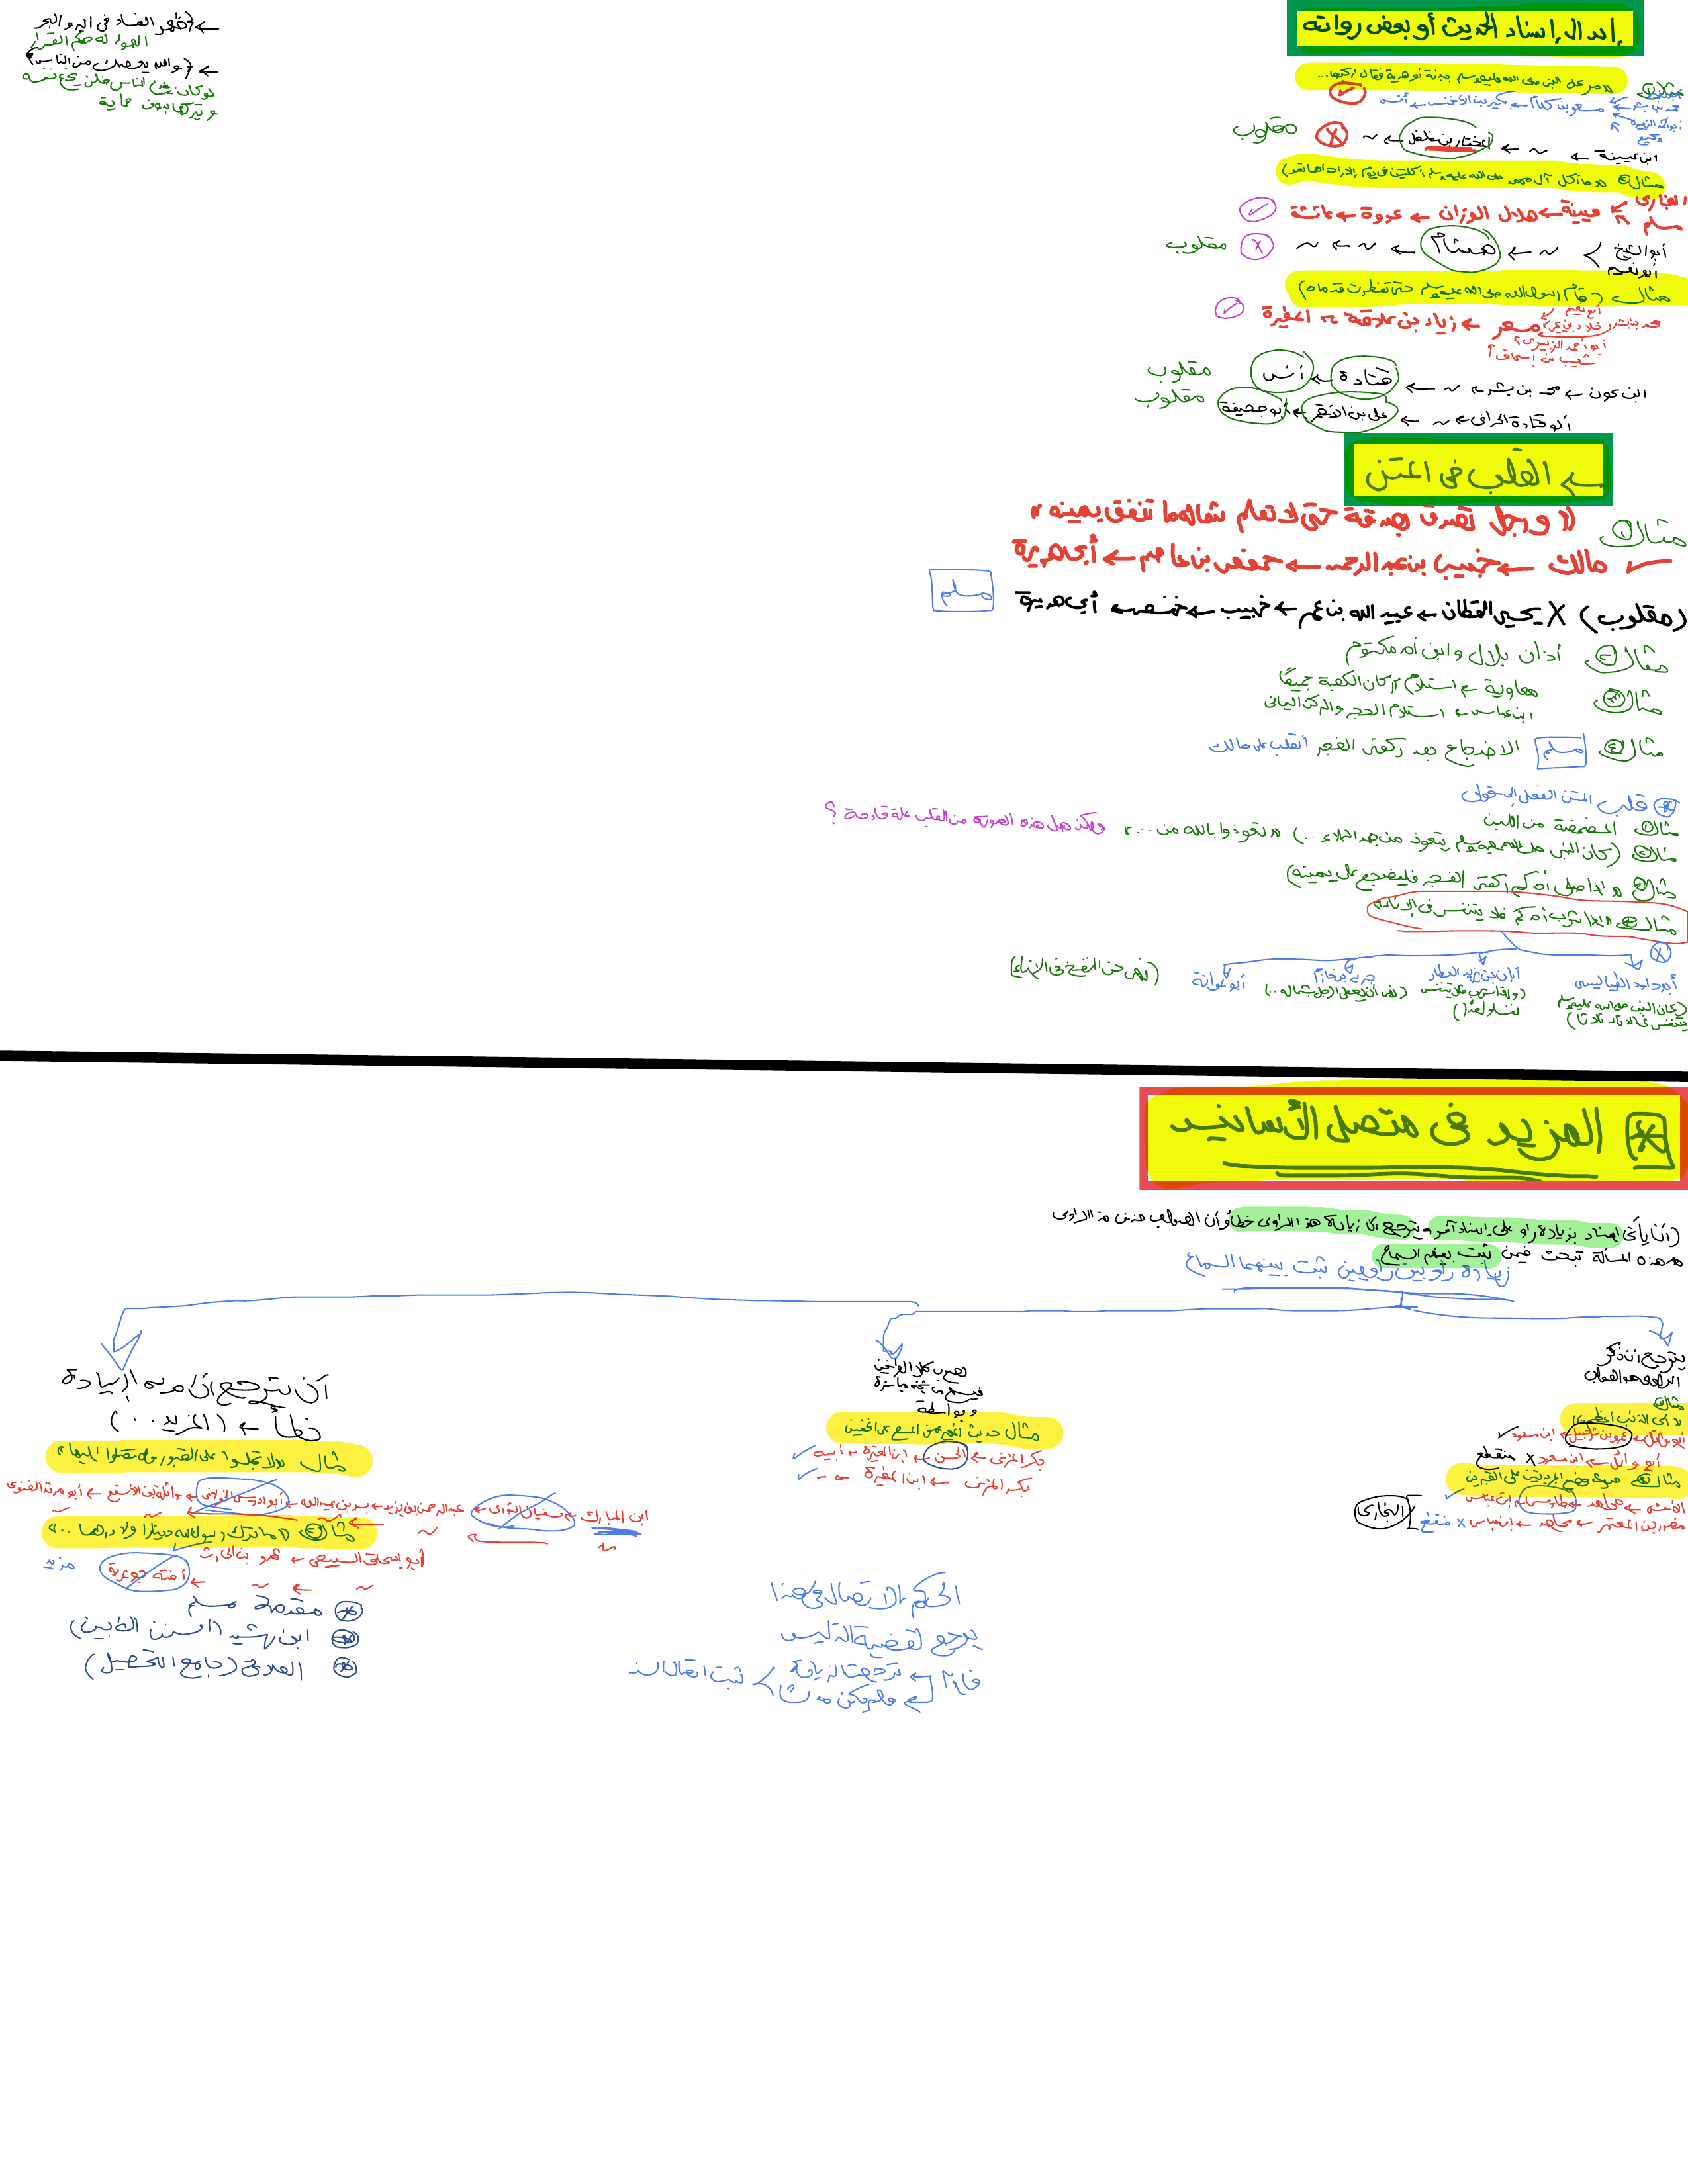 إبدال إسناد الحديث أو بعض رواته
مثال① «مر على النبي صلى الله عليه وسلم ببدنة أو هدية فقال اركبها...
محمد بن بشر
أبو أحمد الزبيري
وكيع
← مسعر بن كدام ← بكير بن الأخنس ← أنس ✓
ابن عيينة ← ~ ← المختار بن فلفل ← ~ X مقلوب
مثال② «ما أكل آل محمد صلى الله عليه وسلم أكلتين في يوم إلا إحداهما تمر)
البخاري
مسلم
← هلال الوزان ← عروة ← عائشة ✓
أبو الشيخ
أبو نعيم
~ ← هشام ← ~ ← ~ X مقلوب
مثال (قام رسول الله صلى الله عليه وسلم حتى تفطرت قدماه)
محمد بن بشر
أبو نعيم
خلاد بن يحيى
أبو أحمد الزبيري
شعيب بن إسحاق
مسعر ← زياد بن علاقة ← المغيرة ✓
ابن عون ← محمد بن بشر ← ~ ← قتادة ← أنس مقلوب
أبو قتادة الحراني ← ~ ← علي بن الأقمر ← أبو جحيفة مقلوب
القلب في المتن
مثال① «ورجل تصدق بصدقة حتى لا تعلم شماله ما تنفق يمينه»
✓ مالك ← خبيب بن عبد الرحمن ← حفص بن عاصم ← أبي هريرة
(مقلوب) X يحيى القطان ← عبيد الله بن عمر ← خبيب ← حفص ← أبي هريرة مسلم
مثال② أذان بلال وابن أم مكتوم
مثال③ معاوية ← استلام أركان الكعبة جميعًا
ابن عباس ← استلام الحجر والركن اليماني
مثال④ مسلم الاضجاع بعد ركعتي الفجر انقلب على مالك
قلب المتن الفعلي إلى قولي
مثال① المضمضة من اللبن
مثال② (كان النبي صلى الله عليه وسلم يتعوذ من جهد البلاء ...) «تعوذوا بالله من ...» ولكن هل هذه الصورة من القلب علة قادحة؟
مثال③ «إذا صلى أحدكم ركعتي الفجر فليضجع على يمينه)
مثال④ «إذا شرب أحدكم فلا يتنفس في الإناء»
X
أبو داود الطيالسي
(كان النبي صلى الله عليه وسلم
يتنفس في الإناء ثلاثا)
أبان بن يزيد العطار
(وإذا شرب فلا يتنفس
نفسا واحدا)
جرير بن حازم
أبو عوانة
(نهى عن النفخ في الإناء)
← (ظهر الفساد في البر والبحر
الهواء له حكم القرار
← (والله يعصمك من الناس)
المزيد في متصل الأسانيد
(أن يأتي إسناد بزيادة راو على إسناد آخر ويترجح أن زيادة هذا الراوي خطأ وأن الصواب حذف هذا الراوي
هذه المسألة تبحث فيمن ثبت بينهم السماع
زيادة راو بين راويين ثبت بينهما السماع
يترجح أن ذكر
الواسطة هو الصواب
مثال①
«أي الذنب أعظم»)
أبو وائل ← عمرو بن شرحبيل ← ابن مسعود ✓
أبو وائل ← ابن مسعود X منقطع
مثال② وضع الجريدتين على القبرين
الأعمش ← مجاهد ← طاوس ← ابن عباس ✓
منصور بن المعتمر ← مجاهد ← ابن عباس X منقطع
البخاري
تصويب كلا الوجهين
فيسمع من شيخه مباشرة
وبواسطة
مثال حديث المغيرة بن شعبة المسح على الخفين
بكر المزني ← الحسن ← ابن المغيرة ← أبيه ✓
بكر المزني ← ابن المغيرة ← ~ ✓
أن يترجح أن هذه الزيادة
خطأ ← (المزيد ..)
مثال «لا تجلسوا على القبور ولا تصلوا إليها»
ابن المبارك ← سفيان الثوري ← عبد الرحمن بن يزيد ← بسر بن عبيد الله ← أبو إدريس الخولاني ← واثلة بن الأسقع ← أبو مرثد الغنوي
مثال② «ما ترك رسول الله دينارا ولا درهما ...»
أبو إسحاق السبيعي ← عمرو بن الحارث
~ ← ~ ← أخته جويرية مزيد
مقدمة مسلم
ابن رشيد (السنن الأبين)
العلائي (جامع التحصيل)
الحكم بالاتصال في هذا
يرجع لقضية التدليس
فإن ← ترجحت الزيادة
← ولم يكن مدلسًا
ثبت اتصال السند